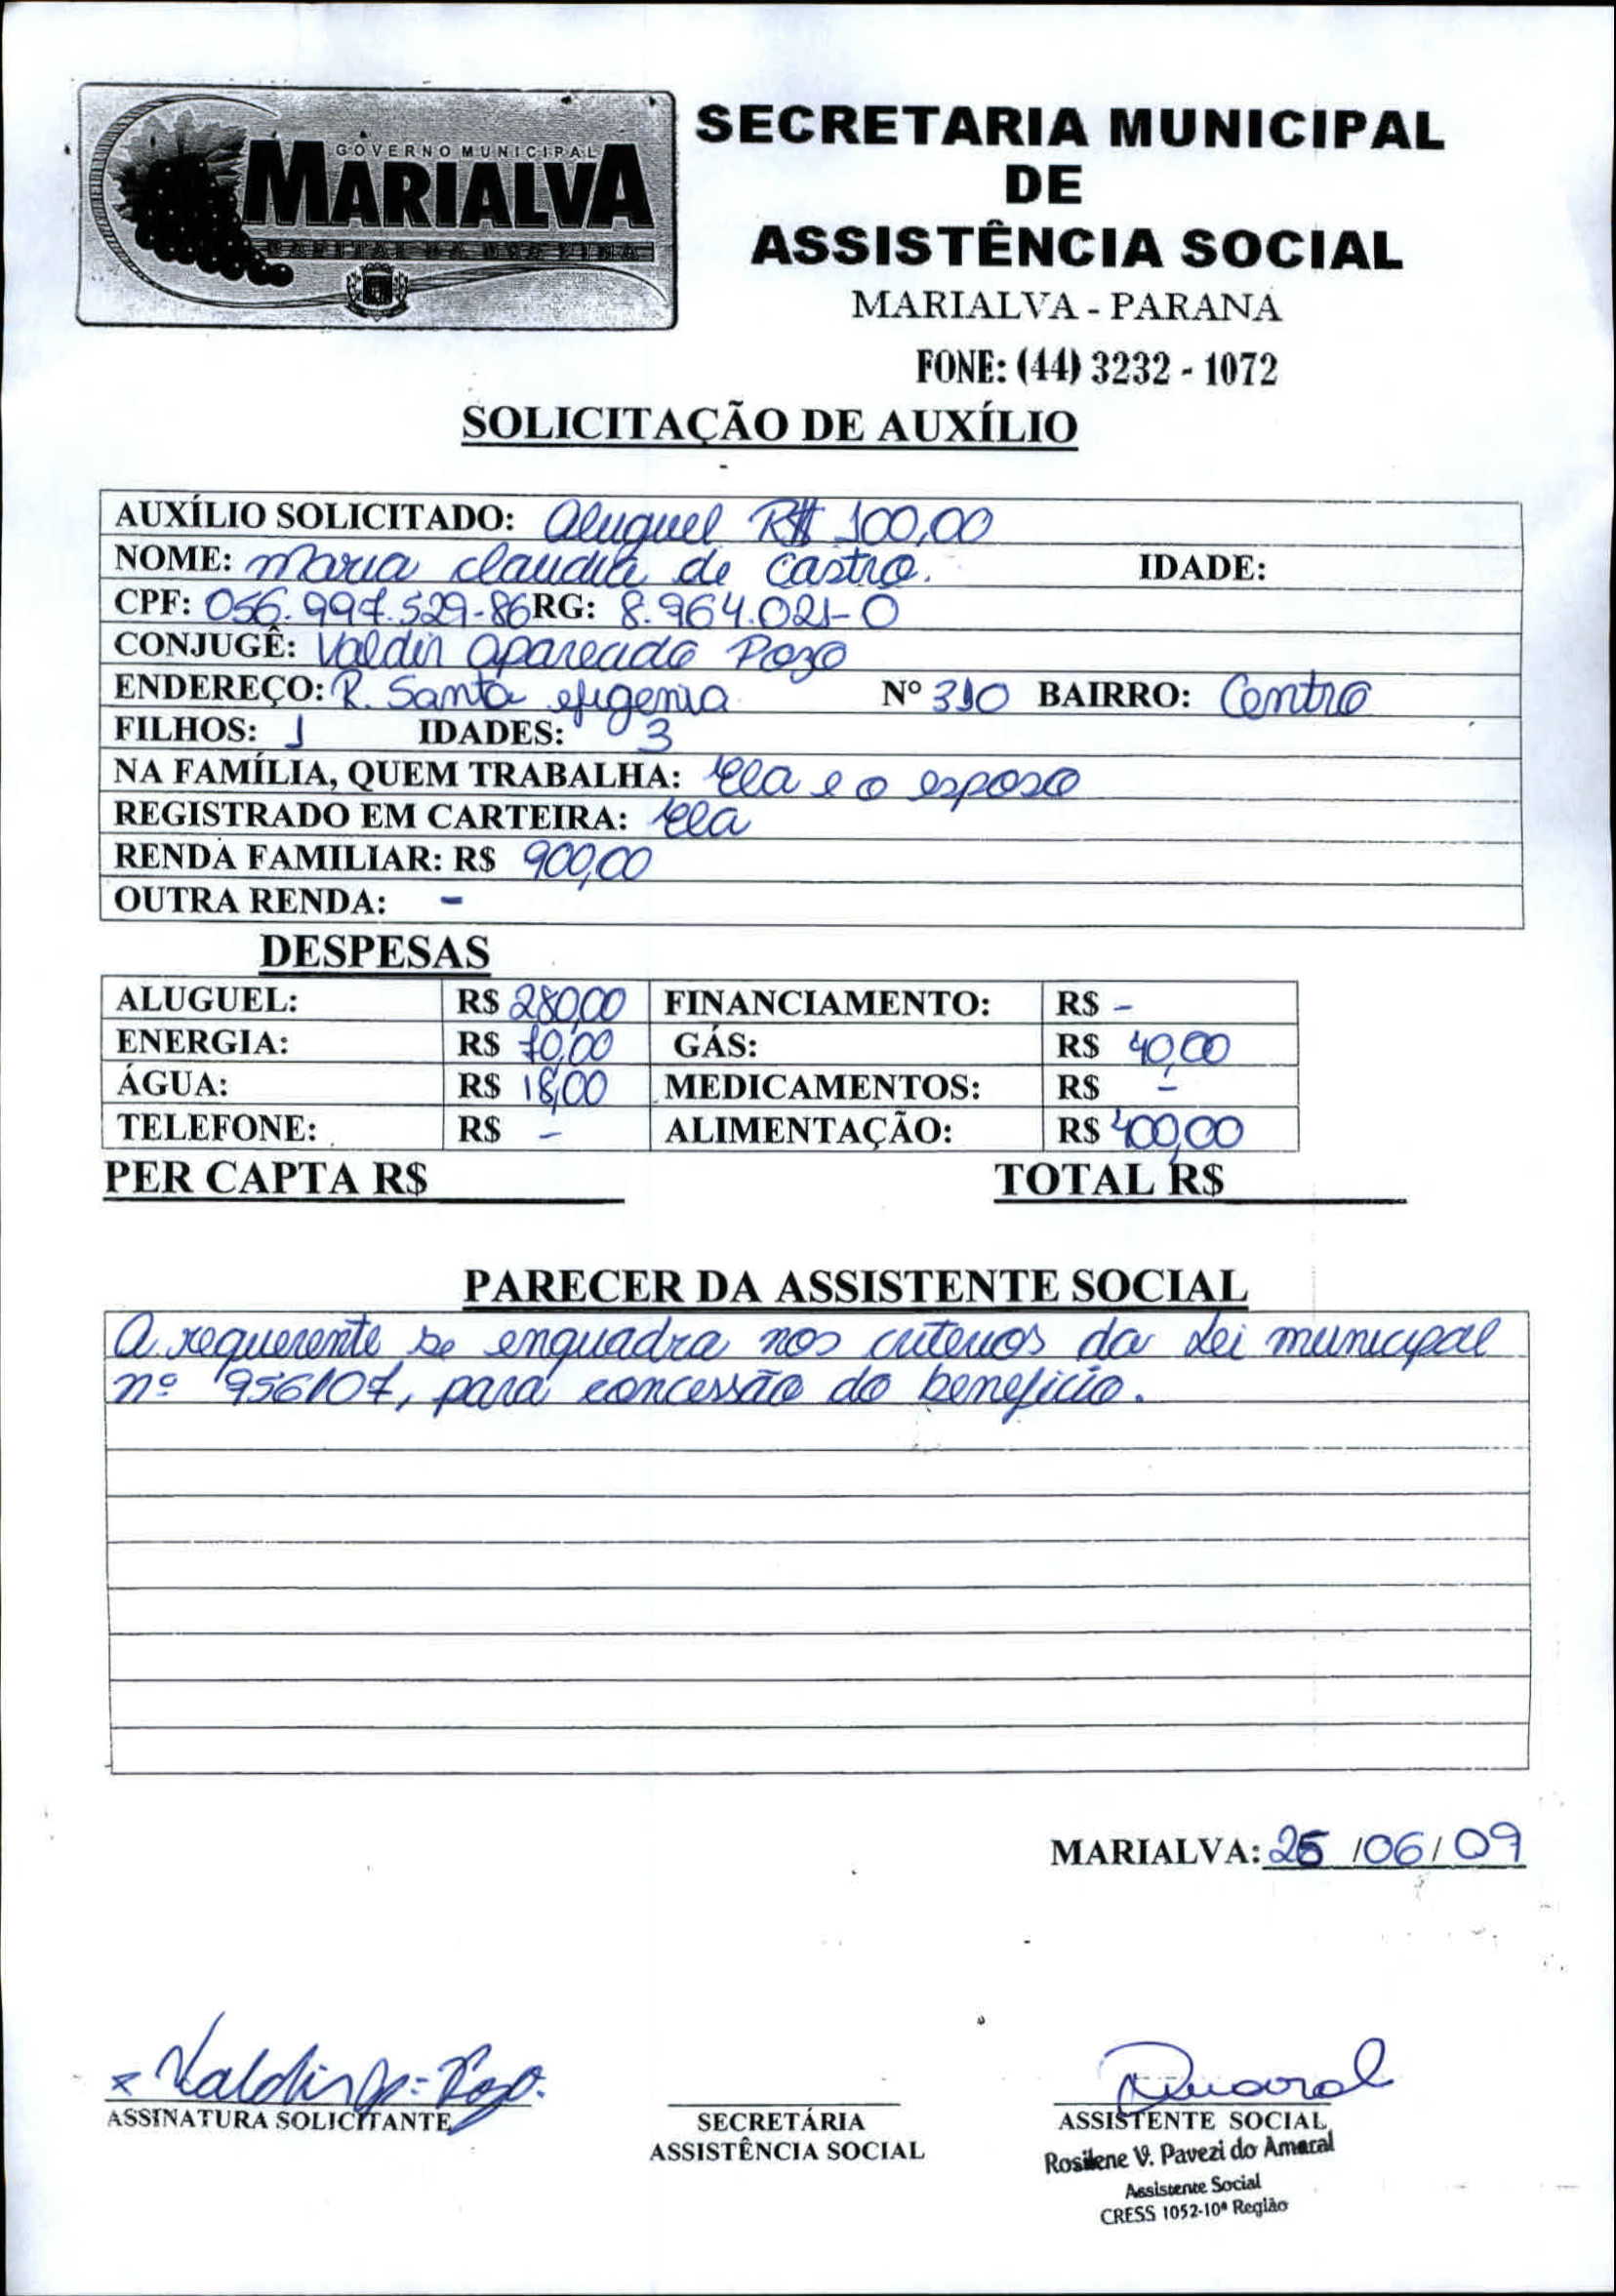 GOVERNO MUNICIPAL
MARIALVA
CAPITAL DA UVA FINA
SECRETARIA MUNICIPAL
DE
ASSISTÊNCIA SOCIAL
MARIALVA - PARANA
FONE: (44) 3232 - 1072
SOLICITAÇÃO DE AUXÍLIO
AUXÍLIO SOLICITADO: Aluguel R$ 100,00
NOME: Maria Claudia de Castro. IDADE:
CPF: 056.997.529-86 RG: 8.964.021-0
CONJUGÊ: Valdir Aparecido Pozo
ENDEREÇO: R. Santa efigenia Nº 310 BAIRRO: Centro
FILHOS: 1 IDADES: 3
NA FAMÍLIA, QUEM TRABALHA: Ela e o esposo
REGISTRADO EM CARTEIRA: Ela
RENDA FAMILIAR: R$ 900,00
OUTRA RENDA: -
DESPESAS
ALUGUEL: R$ 280,00 FINANCIAMENTO: R$ -
ENERGIA: R$ 70,00 GÁS: R$ 40,00
ÁGUA: R$ 18,00 MEDICAMENTOS: R$ -
TELEFONE: R$ - ALIMENTAÇÃO: R$ 400,00
PER CAPTA R$ TOTAL R$
PARECER DA ASSISTENTE SOCIAL
A requerente se enquadra nos criterios da Lei municipal
nº 956/07, para concessão do beneficio.
MARIALVA: 25 /06/ 09
x Valdir Ap. Pozo.
ASSINATURA SOLICITANTE
SECRETÁRIA
ASSISTÊNCIA SOCIAL
Amaral
ASSISTENTE SOCIAL
Rosilene V. Pavezi do Amaral
Assistente Social
CRESS 1052-10ª Região